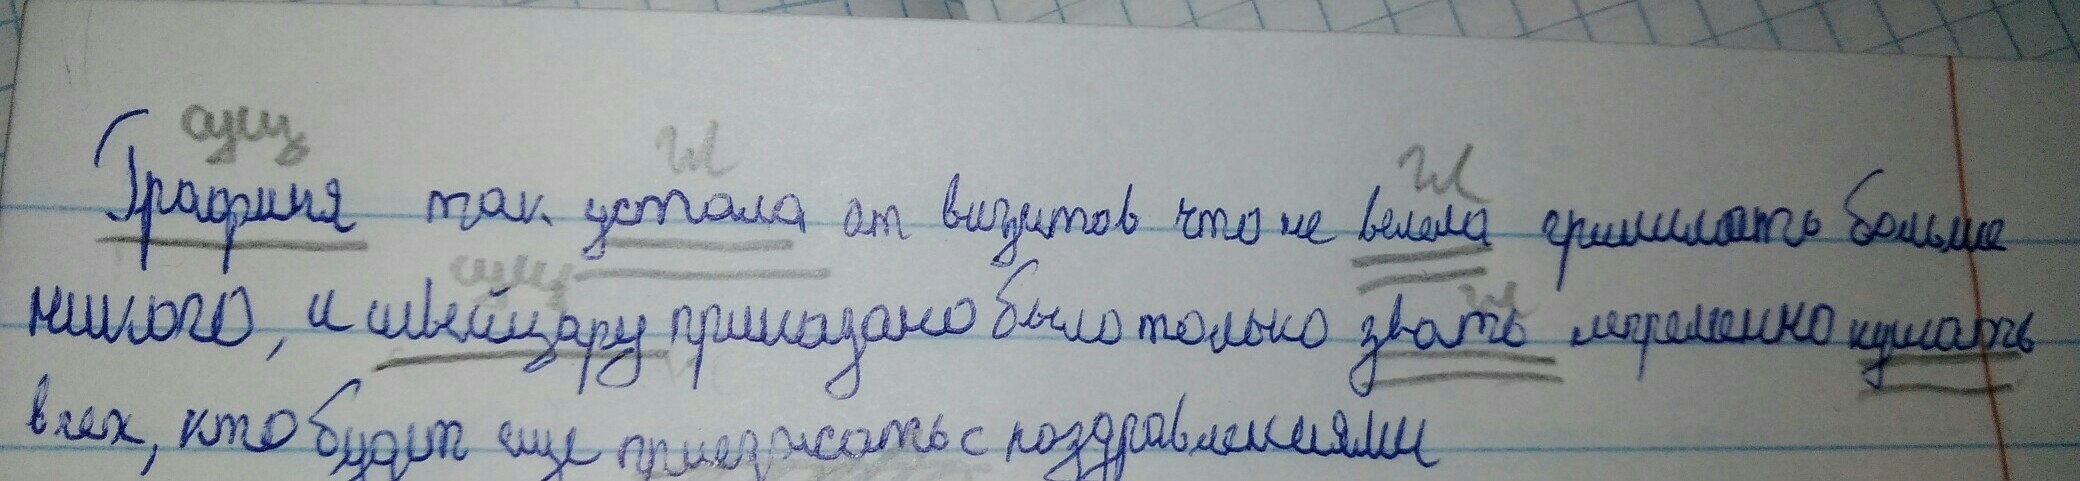 сущ
гл
гл
Графиня так устала от визитов что не велела принимать больше
сущ
гл
никого, и швейцару приказано было только звать непременно кушать
всех, кто будет еще приезжать с поздравлениями